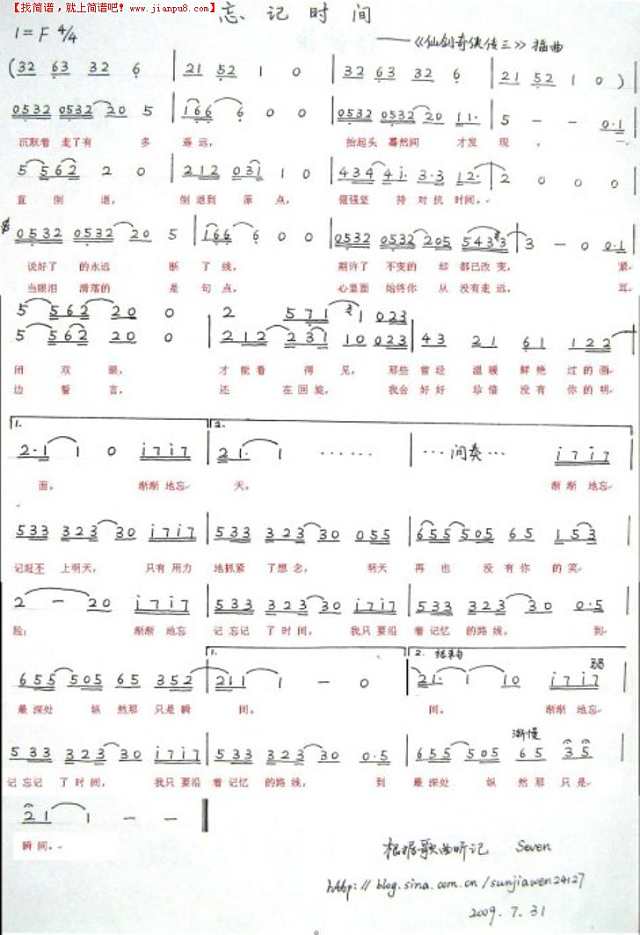 【找简谱，就上简谱吧！www.jianpu8.com】
忘记时间
1=F 4/4
——《仙剑奇侠传三》插曲
(32 63 32 6 | 21 52 1 0 | 32 63 32 6 | 21 52 1 0)
0532 0532 20 5 | 166 6 0 0 | 0532 0532 20 11· | 5 - - 0·1
沉默着 走了有 多 遥远， 抬起头 蓦然间 才发现， 一
5 562 2 0 | 212 031 1 0 | 434 4i· 3·3 12· | 2 0 0 0
直 倒 退， 倒退到 原 点， 倔强坚 持 对抗 时间。
0532 0532 20 5 | 166 6 0 0 | 0532 0532 205 5433 | 3 - 0 0·1
说好了 的永远 断 了 线， 期许了 不变的 却 都已改变， 紧
当眼泪 滑落的 是 句点， 心里面 始终你 从 没有走远， 耳
5 562 20 0 | 2 571 1 023
5 562 20 0 | 212 231 10 023 | 43 21 61 122
闭 双 眼， 才能看 得见， 那些 曾经 温暖 鲜艳 过的 画
边 誓 言， 还 在回旋， 我会 好好 珍惜 没有 你的 明
1. 2.
2·1 1 0 i7i7 | 21· 1 ······ | ··· 间奏··· i7i7
面， 渐渐 地忘 天， 渐渐 地忘
533 323 30 i7i7 | 533 323 30 055 | 655 505 65 153
记起不 上明天， 只有 用力 地抓紧 了想念， 明天 再 也 没 有 你 的 笑
2 - 20 i7i7 | 533 323 30 i7i7 | 533 323 30 0·5
脸； 渐渐 地忘 记忘记 了时间， 我只 要沿 着记忆 的路线， 到
1. 2. 结束句
655 505 65 352 | 21 1 - 0 | 21· 1 10 i7i7
最深处 纵 然那 只是 瞬 间。 间。 渐渐 地忘
渐慢
533 323 30 i7i7 | 533 323 30 0·5 | 655 505 65 35
记忘记 了时间， 我只 要沿 着记忆 的路线， 到 最深处 纵 然那 只是
21 1 - -
瞬间。
根据歌曲听记 Seven
http://blog.sina.com.cn/sunjiawen24127
2009.7.31